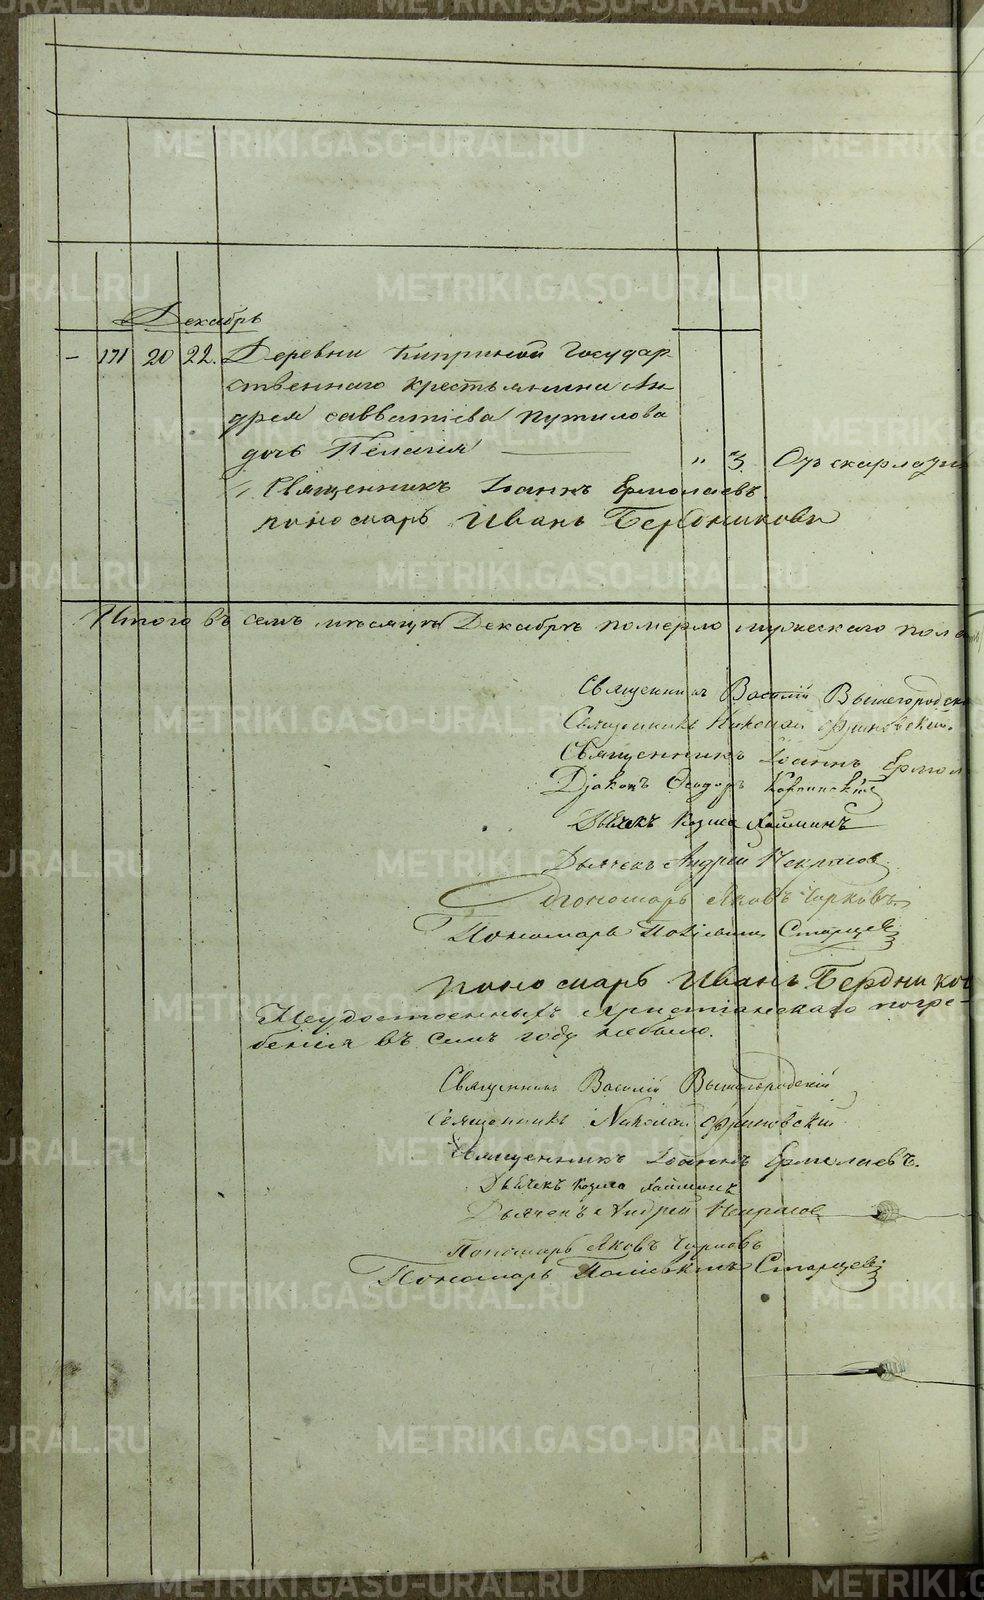 Декабрь
- 171 20 22. Деревни Киприной Государ
ственнаго крестьянина Ан
дрея Савватіева Путилова
дочь Пелагія " 3. Отъ скарлатины
Священникъ Іоаннъ Ермолаевъ
пономарь Иванъ Бердниковъ
Итого въ семъ мѣсяцѣ Декабрѣ померло мужескаго пола
Священникъ Василій Вышегородскі
Священникъ Николай
Священникъ Іоаннъ Ермол
Діаконъ Ѳеодоръ
Дьячекъ Козма
Дьячекъ Андрей Некрасов
Пономарь Яковъ
Пономарь Старцевъ
пономарь Иванъ Бердников
Неудостоенныхъ христіанскаго погре-
бенія въ семъ году небыло.
Священникъ Василій Вышегородскій
Священникъ Николай
Священникъ Іоаннъ Ермолаевъ.
Дьячекъ Козма
Дьячекъ Андрей Некрасов
Пономарь Яковъ
Пономарь Старцевъ
METRIKI.GASO-URAL.RU